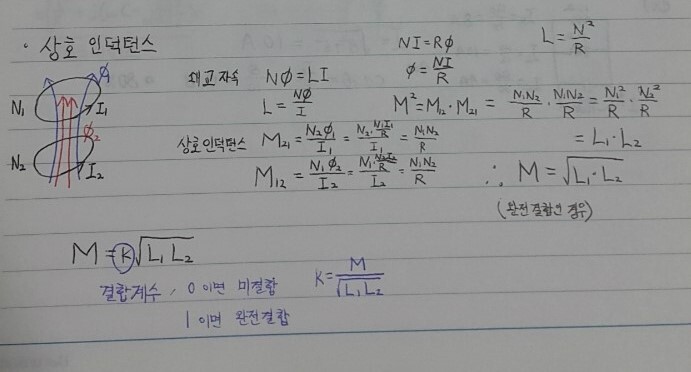 · 상호 인덕턴스
NI=Rφ
L=N²/R
φ₁
N₁ I₁
φ₂
N₂ I₂
쇄교자속 Nφ=LI
φ=NI/R
L=Nφ/I
M²=M₁₂·M₂₁ = N₁N₂/R · N₁N₂/R = N₁²/R · N₂²/R
상호인덕턴스 M₂₁=N₂φ₁/I₁=N₂·N₁I₁/R/I₁=N₁N₂/R
= L₁·L₂
M₁₂=N₁φ₂/I₂=N₁·N₂I₂/R/I₂=N₁N₂/R
∴ M=√L₁·L₂
(완전결합인 경우)
M=k√L₁L₂
결합계수, 0이면 미결합
K=M/√L₁L₂
1이면 완전결합